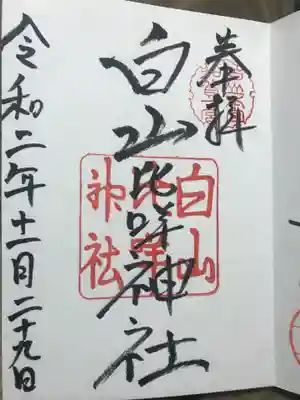 奉拝
白山比咩神社
令和二年十一月二十九日
白山
比咩
神社